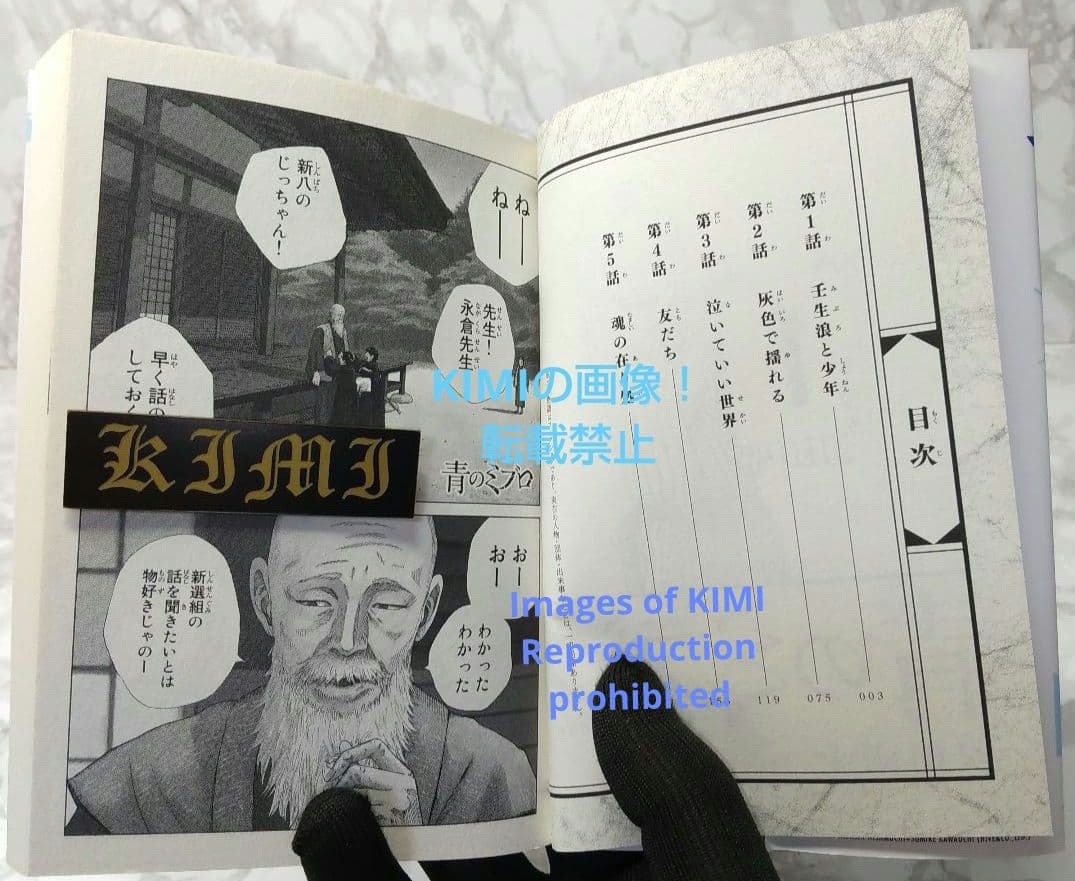 目次
第1話 壬生浪と少年 003
第2話 灰色で揺れる 075
第3話 泣いていい世界 119
第4話 友だち
第5話 魂の在
ねー
ねー
新八の
じっちゃん!
先生!
永倉先生
早く話の
しておく
青のミブロ
おー
おー
わかった
わかった
新選組の
話を聞きたいとは
物好きじゃのー
KIMI
KIMIの画像!
転載禁止
Images of KIMI
Reproduction
prohibited